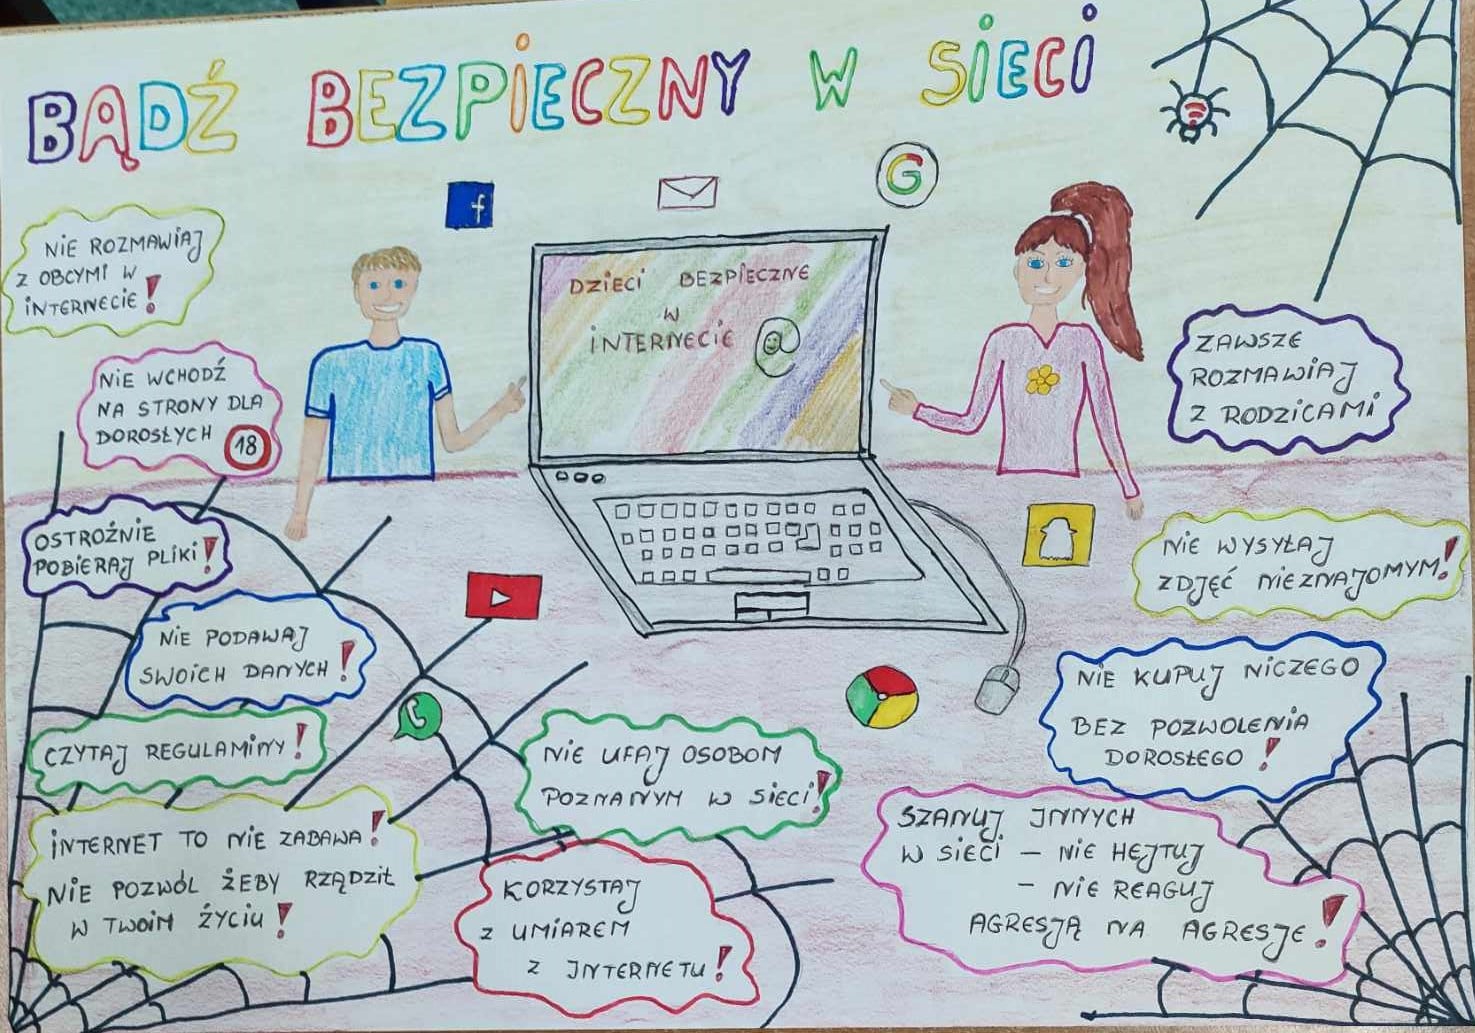 BĄDŹ BEZPIECZNY W SIECI
f
G
NIE ROZMAWIAJ
Z OBCYMI W
INTERNECIE!
DZIECI BEZPIECZNE
W
INTERNECIE @
NIE WCHODŹ
NA STRONY DLA
DOROSŁYCH 18
ZAWSZE
ROZMAWIAJ
Z RODZICAMI
OSTROŹNIE
POBIERAJ PLIKI!
NIE WYSYŁAJ
ZDJĘĆ NIEZNAJOMYM!
NIE PODAWAJ
SWOICH DANYCH!
NIE KUPUJ NICZEGO
BEZ POZWOLENIA
DOROSŁEGO!
CZYTAJ REGULAMINY!
NIE UFAJ OSOBOM
POZNANYM W SIECI!
INTERNET TO NIE ZABAWA!
NIE POZWÓL ŻEBY RZĄDZIŁ
W TWOIM ŻYCIU!
KORZYSTAJ
Z UMIAREM
Z INTERNETU!
SZANUJ INNYCH
W SIECI – NIE HEJTUJ
– NIE REAGUJ
AGRESJĄ NA AGRESJE!